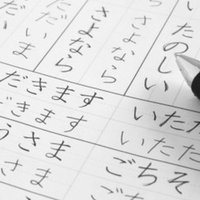 たのしい
さよなら
さよなら
だいま
だいま
だきます
だきます
うさま
さま
いただ
いただ
ごちそ
ごちそ